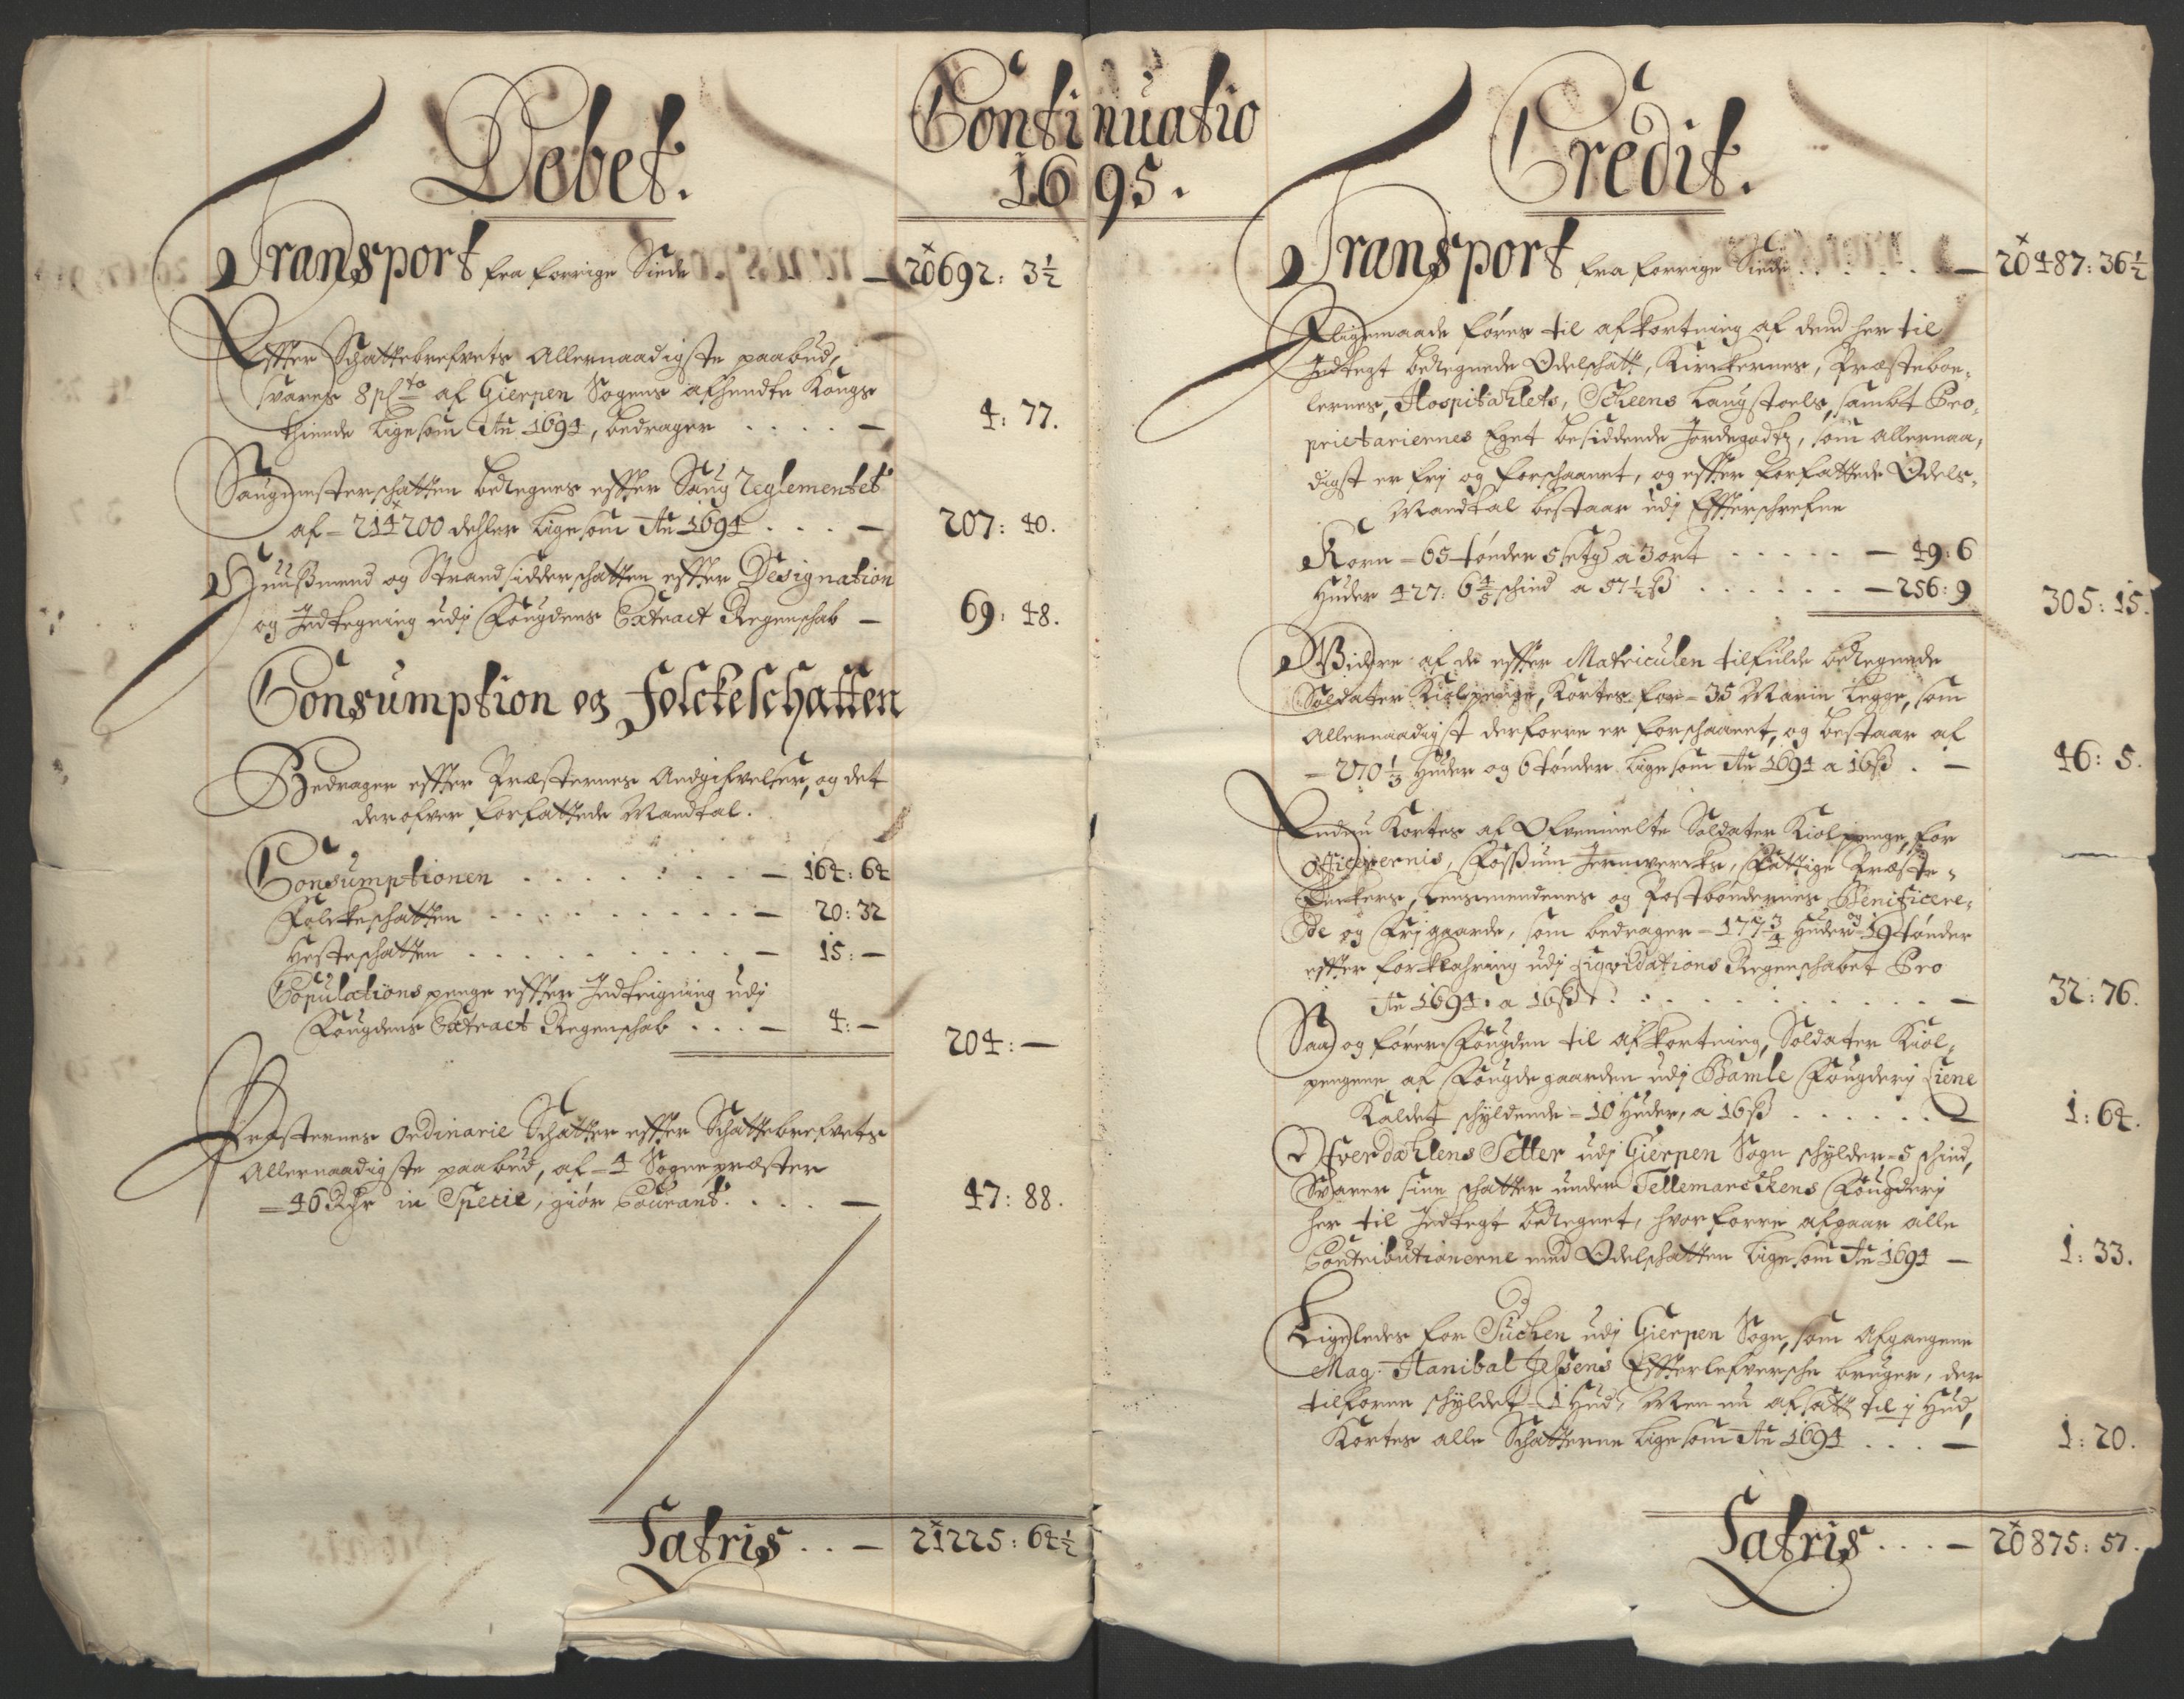 Continuatio
1695.
Debet.
Transport fra forrige Siide — 20692: 3½
Effter Schattebrefvets Allernaadigste paabud,
svares 8 pCto af Gierpen Sogens afhendte Kongs
thiende ligesom Ao 1694, bedrager . . . . — 4: 77.
Saugmesterschatten beregnes effter Saug Reglementet
af = 214200 dehler ligesom Ao 1694 . . . — 207: 40.
Huußmend og Strandsidderschatten effter Designation
og Indtegning udj Fougdens Extract Regenschab — 69: 48.
Consumption og Folckeschatten
Bedrager effter Præsternes Andgifvelser, og det
derofver forfattede Mandtal.
Consumptionen . . . . . . . — 164: 64
Folckeschatten . . . . . . . . — 20: 32
Hesteschatten . . . . . . . . — 15: —
Copulations penge effter Indteigning udj
Fougdens Extract Regenschab . . . — 4: —
204: —
Præsternes Ordinarie Schatter effter Schattebrefvets
Allernaadigste paabud, af = 4 Sognepræster
= 46 Rdr in Specie, giør Courant . . . . — 47: 88.
Latris . . — 21225: 64½
Credit.
Transport fra forrige Siide . . . . . — 20487: 36½
Ligemaade føres til afkortning af dend her til
Indtegt beregnede Odelschatt, Kirckernes, Præstebon-
lernes, Hospitahlets, Scheens Laugstoels, sambt Pro-
prietariernes Eget besiddende Jordegodtz, som allernaa-
digst er frj og forschaanet, og effter forfattede Odels-
Mandtal bestaar udj Effterschrefne
Korn = 65 tønder 5 setg a 3 ort . . . . . — 49: 6
Huder 427: 6⅘ schind a 57½ ß . . . . . . — 256: 9
305: 15.
Widere af de effter Matriculen tilfulde beregnede
Soldater Kiolpenge, Kortes for = 35 Marin Legge, som
Allernaadigst derforre er forschaanet, og bestaar af
= 270⅓ Huder og 6 tønder ligesom Ao 1694 a 16 ß . — 46: 5.
Endnu Kortes af Ofvenmelte Soldater Kiolpenge, for
Officerernis, Foßßum Jernwercks, Fattige Præste-
Enckers, Lensmendenes og Postbøndernes Benificere-
de og Frj gaarde, som bedrager = 177¾ Huder og 19 tønder
effter forklahring udj Liqvidations Regenschabet Pro
Ao 1694 . a 16 ß . . . . . . . . . . — 32: 76.
Saa og fører Fougden til afkortning, Soldater Kiol-
pengene af Fougde gaarden udj Bamle Fougderj Liene
Kaldet schyldende = 10 Huder, a 16 ß . . . . . — 1: 64.
Ofverdahlens Setter udj Gierpen Sogn schylder = 5 schind,
Svarer sine schatter under Tellemarckens Fougderj
her til Indtegt beregnet, hvorforre afgaar alle
Contributionerne med Odelschatten ligesom Ao 1694 — 1: 33.
Ligeledes for Buchen udj Gierpen Sogn, som Afgangene
Mag. Hanibal Jeßsens Effterlefversche bruger, der
tilforne schyldet = 1 Hud, Men nu afsatt til ½ Hud,
Kortes alle Schatterne ligesom Ao 1694 . . . — 1: 20.
Latris . . . — 20875: 57.